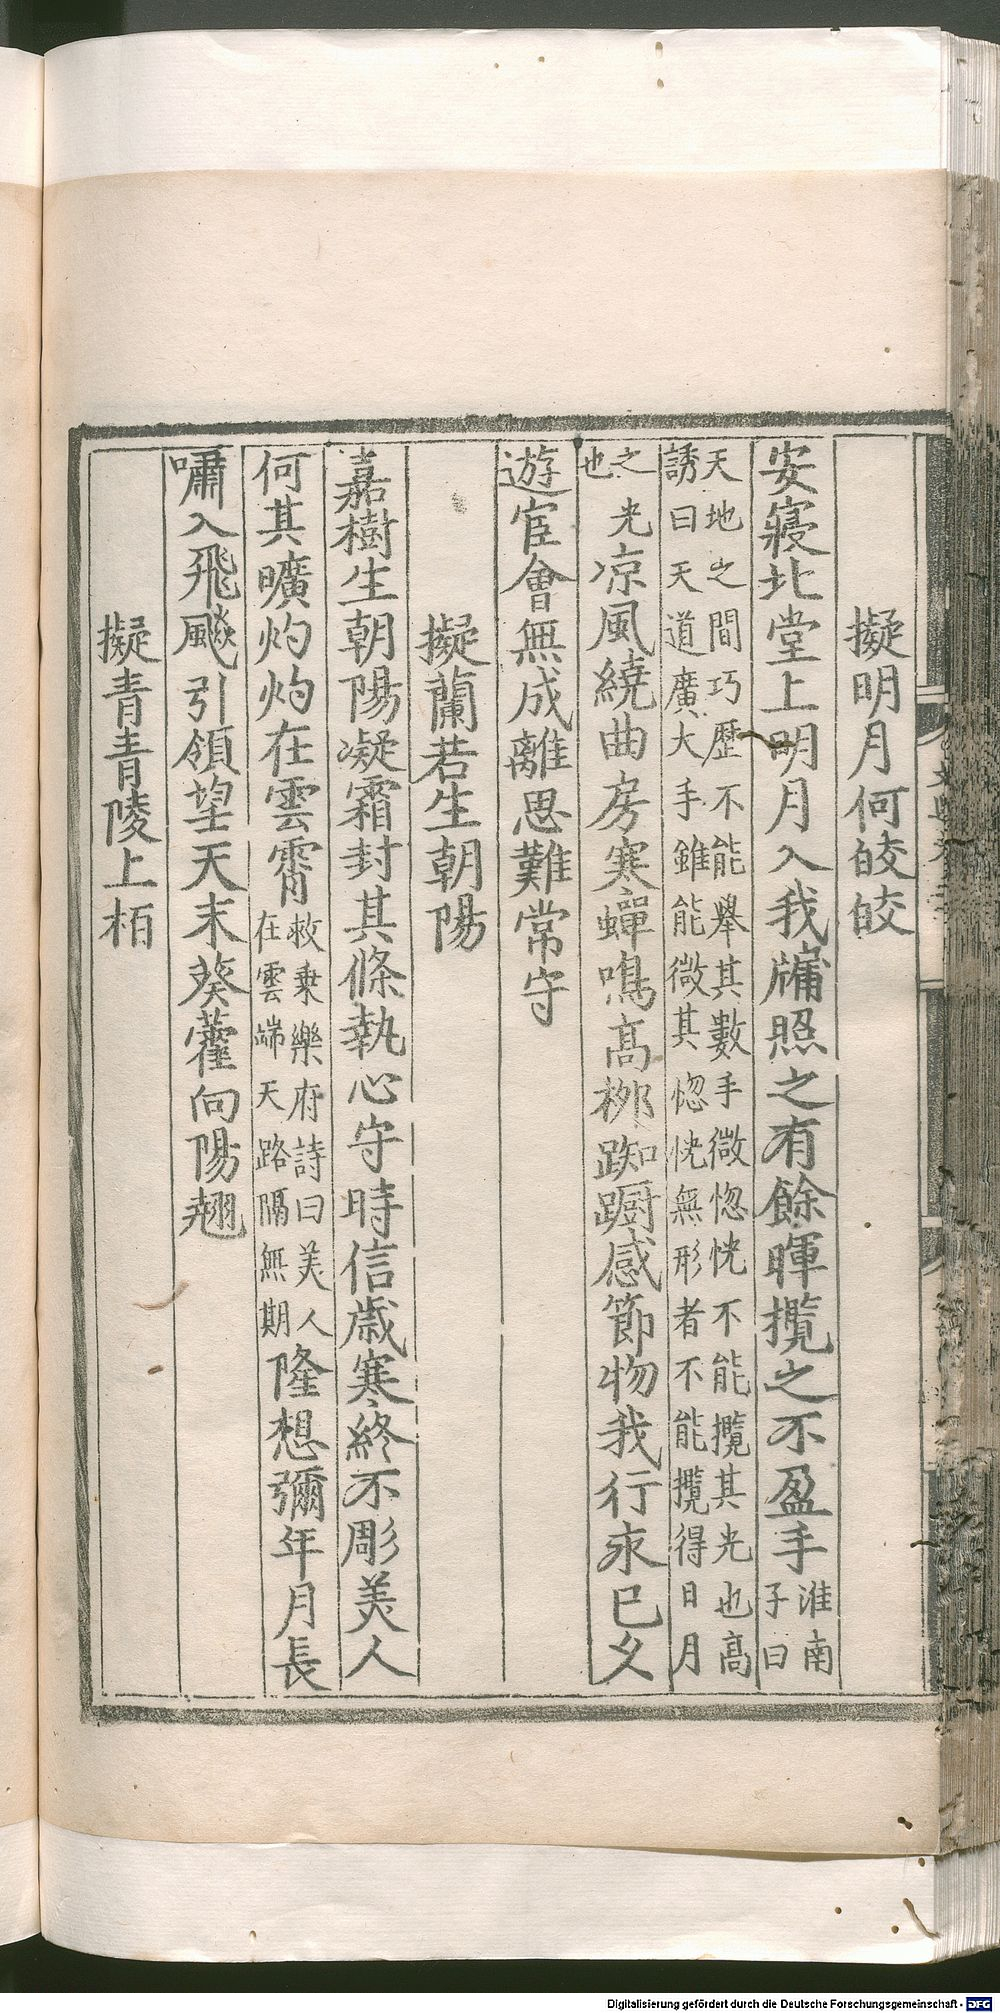 擬明月何皎皎
安寢北堂上明月入我牖照之有餘暉攬之不盈手淮南子曰
天地之間巧歷不能舉其數手微惚恍不能攬其光也高
誘曰天道廣大手雖能微其惚恍無形者不能攬得日月
之光也凉風繞曲房寒蟬鳴高柳踟蹰感節物我行永已久
遊宦會無成離思難常守
擬蘭若生朝陽
嘉樹生朝陽凝霜封其條執心守時信歲寒終不彫美人
何其曠灼灼在雲霄枚乘樂府詩曰美人在雲端天路隔無期隆想彌年月長
嘯入飛飇引領望天末葵藿向陽翹
擬青青陵上栢
Digitalisierung gefördert durch die Deutsche Forschungsgemeinschaft - DFG